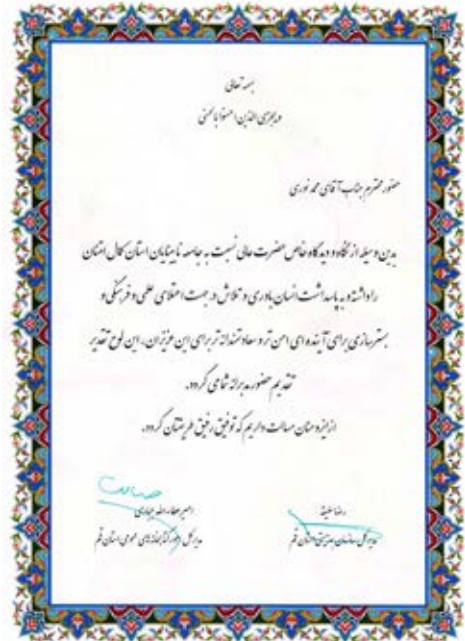 بسمه تعالی
و یجزی الذین احسنوا بالحسنی
حضور محترم جناب آقای محمد نوری
بدین وسیله از نگاه و دیدگاه خاص حضرت عالی نسبت به جامعه نابینایان استان کمال امتنان
را داشته و به پاسداشت انسان باوری و تلاش در جهت اعتلای علمی و فرهنگی و
بسترسازی برای آینده ای امن تر و سعادتمندانه تر برای این عزیزان، این لوح تقدیر
تقدیم حضور مدبرانه شما می گردد.
از ایزد منان مسالت داریم که توفیق رفیق طریقتان گردد.
رضا
مدیرکل سازمان بهزیستی استان قم
امیر
مدیرکل امور کتابخانه های عمومی استان قم